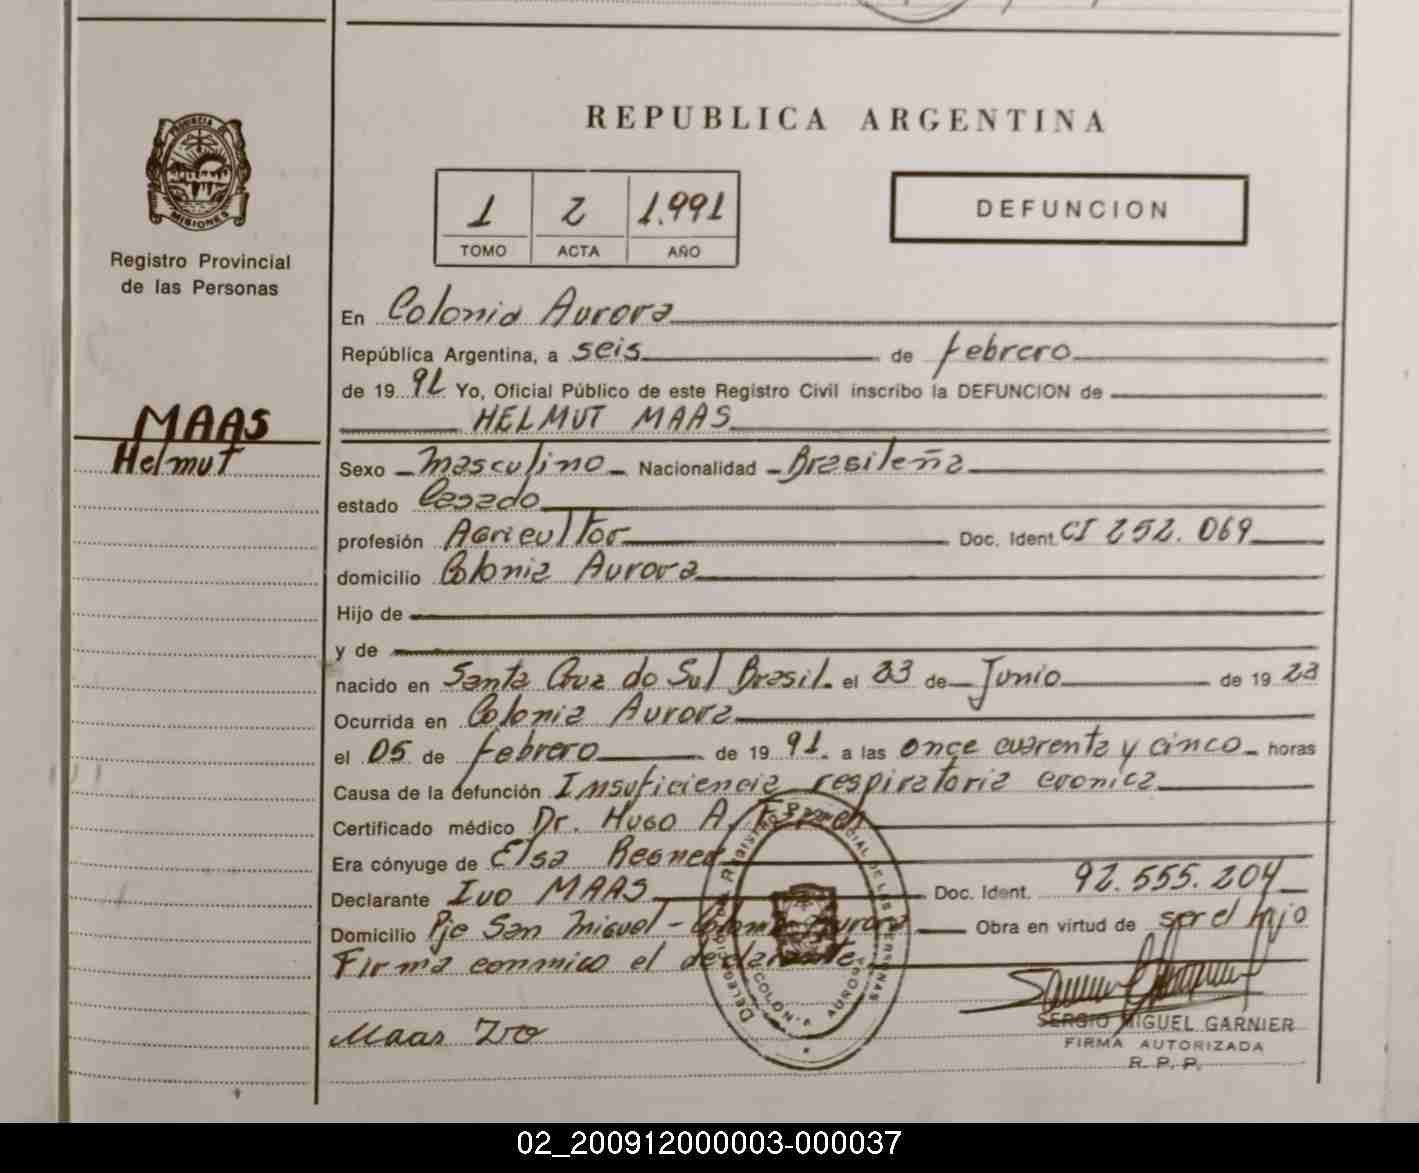 PROVINCIA DE
MISIONES
Registro Provincial
de las Personas
MAAS
Helmut
REPUBLICA ARGENTINA
1 2 1.991
TOMO ACTA AÑO
DEFUNCION
En Colonia Aurora
República Argentina, a seis de febrero
de 19 91 Yo, Oficial Público de este Registro Civil inscribo la DEFUNCION de
HELMUT MAAS
Sexo Masculino Nacionalidad Brasileña
estado Casado
profesión Agricultor Doc. Ident. CI 252.069
domicilio Colonia Aurora
Hijo de
y de
nacido en Santa Cruz do Sul Brasil. el 23 de Junio de 19 23
Ocurrida en Colonia Aurora
el 05 de febrero de 19 91. a las once cuarenta y cinco horas
Causa de la defunción Insuficiencia respiratoria cronica
Certificado médico Dr. Hugo A.
Era cónyuge de Elsa
Declarante Ivo MAAS Doc. Ident. 92.555.204
Domicilio Pje San Miguel - Colonia Aurora Obra en virtud de ser el hijo
Firma conmico el declarante
Maas Ivo
DELEGACION REGISTRO PROVINCIAL DE LAS PERSONAS
COLONIA AURORA
SERGIO MIGUEL GARNIER
FIRMA AUTORIZADA
R. P. P.
02_200912000003-000037